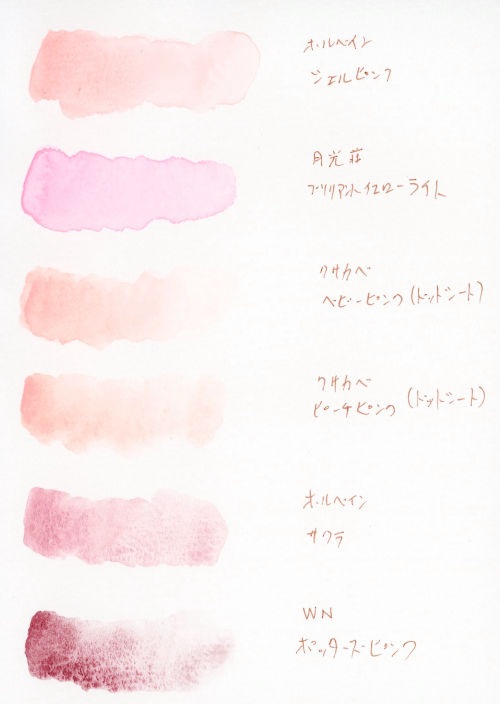 ホルベイン
シェルピンク
月光荘
ブリリアントイエローライト
クサカベ
ベビーピンク(ドットシート)
クサカベ
ピーチピンク(ドットシート)
ホルベイン
サクラ
WN
ポッターズピンク